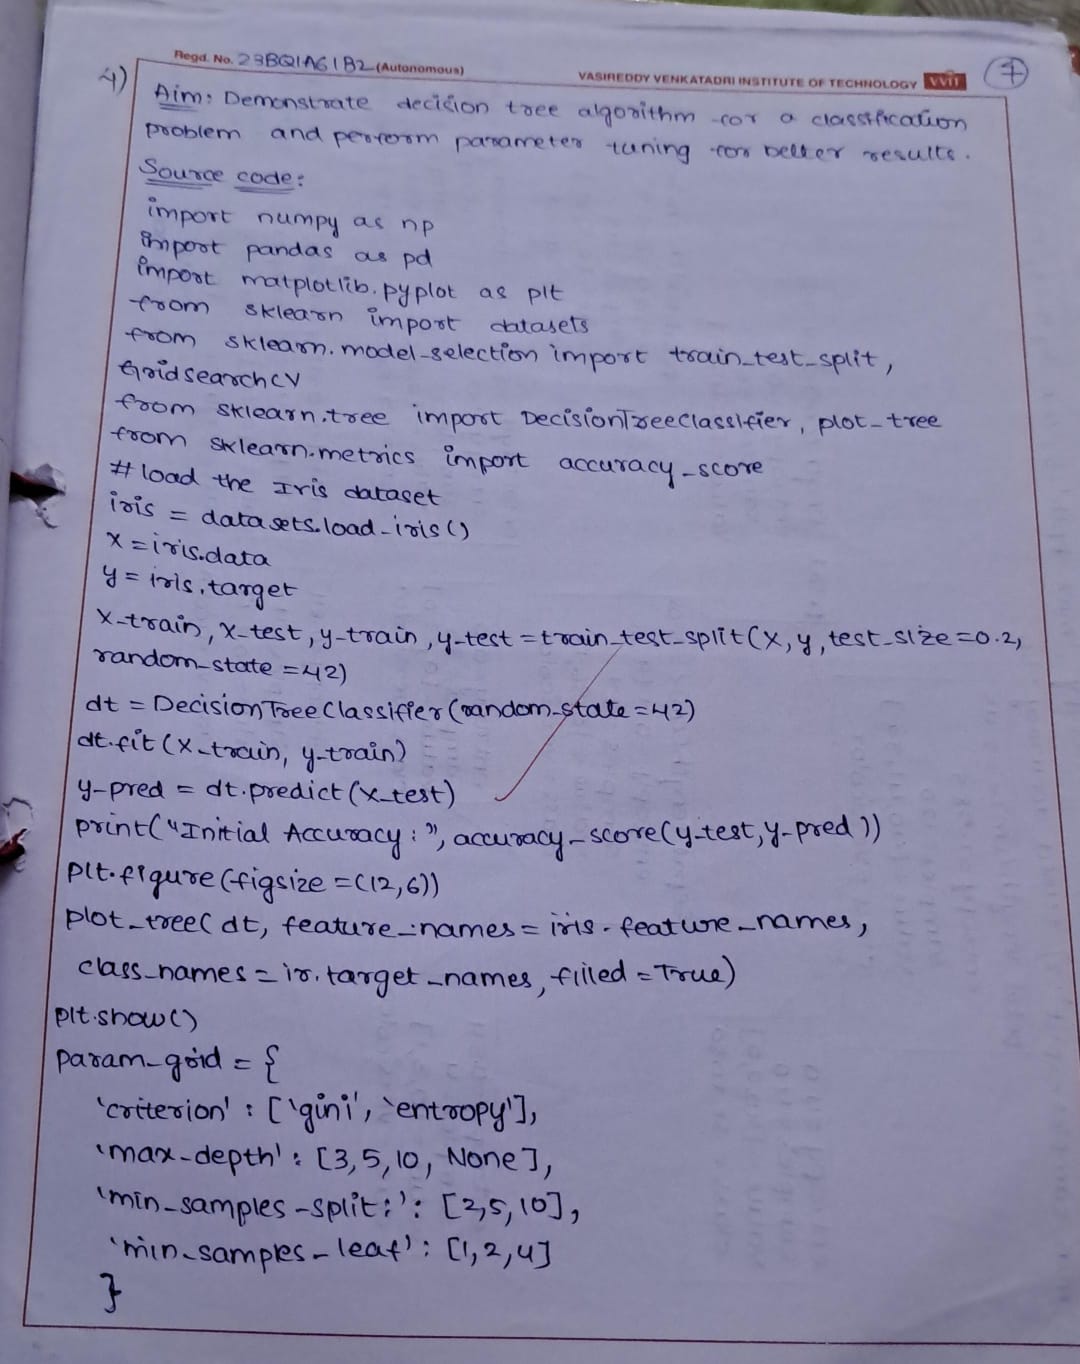 Regd. No. 23BQ1A61B2 (Autonomous)
VASIREDDY VENKATADRI INSTITUTE OF TECHNOLOGY VVIT
7
4)
Aim: Demonstrate decision tree algorithm for a classification
problem and perform parameter tuning for better results.
Source code:
import numpy as np
import pandas as pd
import matplotlib.pyplot as plt
from sklearn import datasets
from sklearn.model_selection import train_test_split,
GridsearchCV
from sklearn.tree import DecisionTreeClassifier, plot_tree
from sklearn.metrics import accuracy_score
# load the Iris dataset
iris = datasets.load_iris()
X = iris.data
y = iris.target
X_train, X_test, y_train, y_test = train_test_split(X, y, test_size=0.2,
random_state=42)
dt = DecisionTreeClassifier(random_state=42)
dt.fit(X_train, y_train)
y_pred = dt.predict(X_test)
print("Initial Accuracy:", accuracy_score(y_test, y_pred))
plt.figure(figsize=(12,6))
plot_tree(dt, feature_names = iris.feature_names,
class_names = ir.target_names, filled=True)
plt.show()
param_grid = {
'criterion' : ['gini', 'entropy'],
'max_depth' : [3,5,10, None],
'min_samples_split:' : [2,5,10],
'min_samples_leaf' : [1,2,4]
}